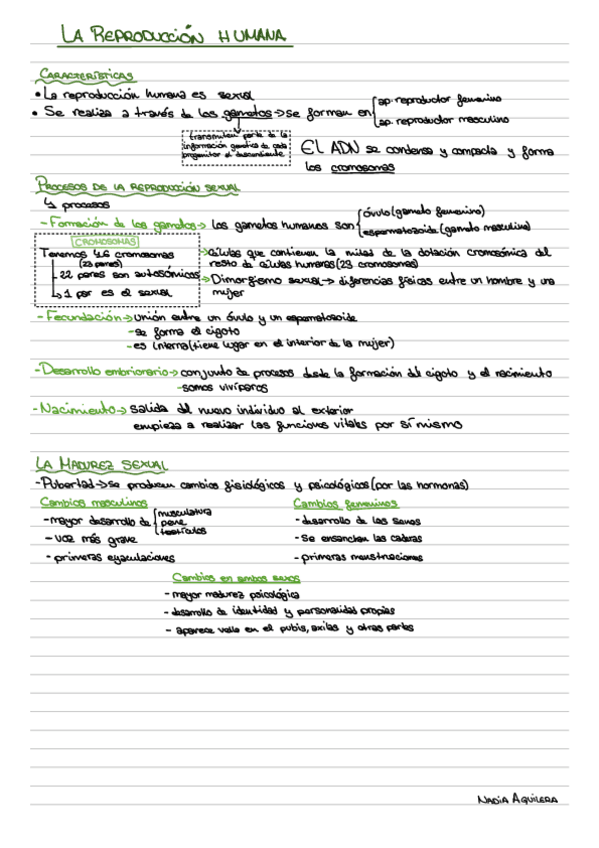 LA REPRODUCCIÓN HUMANA
CARACTERÍSTICAS
• La reproducción humana es sexual
• Se realiza a través de los gametos → se forman en
ap. reproductor femenino
ap. reproductor masculino
transmiten parte de la
información genética de cada
progenitor al descendiente
El ADN se condensa y compacta y forma
los cromosomas
PROCESOS DE LA REPRODUCCIÓN SEXUAL
4 procesos
- Formación de los gametos → los gametos humanos son
óvulo (gameto femenino)
espermatozoide (gameto masculino)
CROMOSOMAS
Tenemos 46 cromosomas
(23 pares)
22 pares son autosómicos
↳ 1 par es el sexual
→ Células que contienen la mitad de la dotación cromosómica del
resto de células humanas (23 cromosomas)
→ Dimorfismo sexual → diferencias físicas entre un hombre y una
mujer
- Fecundación → unión entre un óvulo y un espermatozoide
- se forma el cigoto
- es interna (tiene lugar en el interior de la mujer)
- Desarrollo embrionario → conjunto de procesos desde la formación del cigoto y el nacimiento
- somos vivíparos
- Nacimiento → salida del nuevo individuo al exterior
empieza a realizar las funciones vitales por sí mismo
LA MADUREZ SEXUAL
- Pubertad → se producen cambios fisiológicos y psicológicos (por las hormonas)
Cambios masculinos
- mayor desarrollo de
musculatura
pene
testículos
- voz más grave
- primeras eyaculaciones
Cambios femeninos
- desarrollo de los senos
- se ensanchan las caderas
- primeras menstruaciones
Cambios en ambos sexos
- mayor madurez psicológica
- desarrollo de identidad y personalidad propias
- aparece vello en el pubis, axilas y otras partes
NADIA AQUILERA